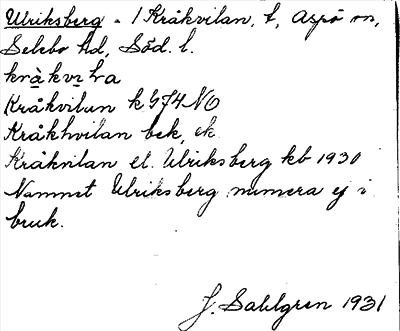 Ulriksberg - / Kråkvilan, t, Aspö sn,
Selebo hd, Söd. l.
kràkvı̨la
Kråkvilan k G74 NO
Kråkhvilan bek, ek
Kråkvilan el. Ulriksberg kb 1930
Namnet Ulriksberg numera ej i
bruk.
J. Sahlgren 1931